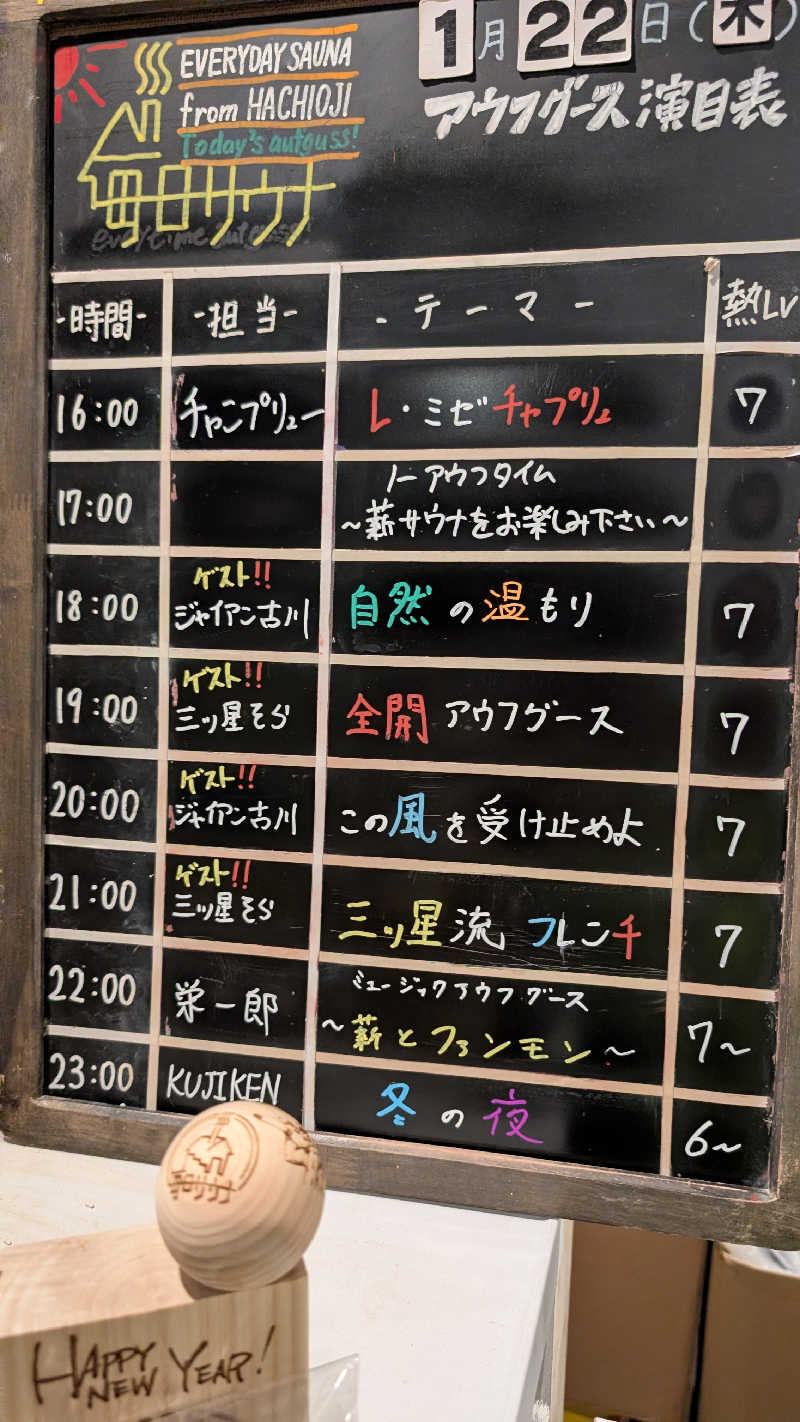 1月22日(木)
アウフグース演目表
EVERYDAY SAUNA
from HACHIOJI
Today's autguss!
毎日サウナ
everytime autguss!
-時間- -担当- -テーマ- 熱LV
16:00 チャンプリュー レ・ミゼチャプリュ 7
17:00 ノーアウフタイム
~薪サウナをお楽しみ下さい~
18:00 ゲスト!! ジャイアン古川 自然の温もり 7
19:00 ゲスト!! 三ッ星そら 全開アウフグース 7
20:00 ゲスト!! ジャイアン古川 この風を受け止めよ 7
21:00 ゲスト!! 三ッ星そら 三ッ星流フレンチ 7
22:00 栄一郎 ミュージックアウフグース
~薪とファンモン~ 7~
23:00 KUJIKEN 冬の夜 6~
毎日サウナ
HAPPY
NEW YEAR!